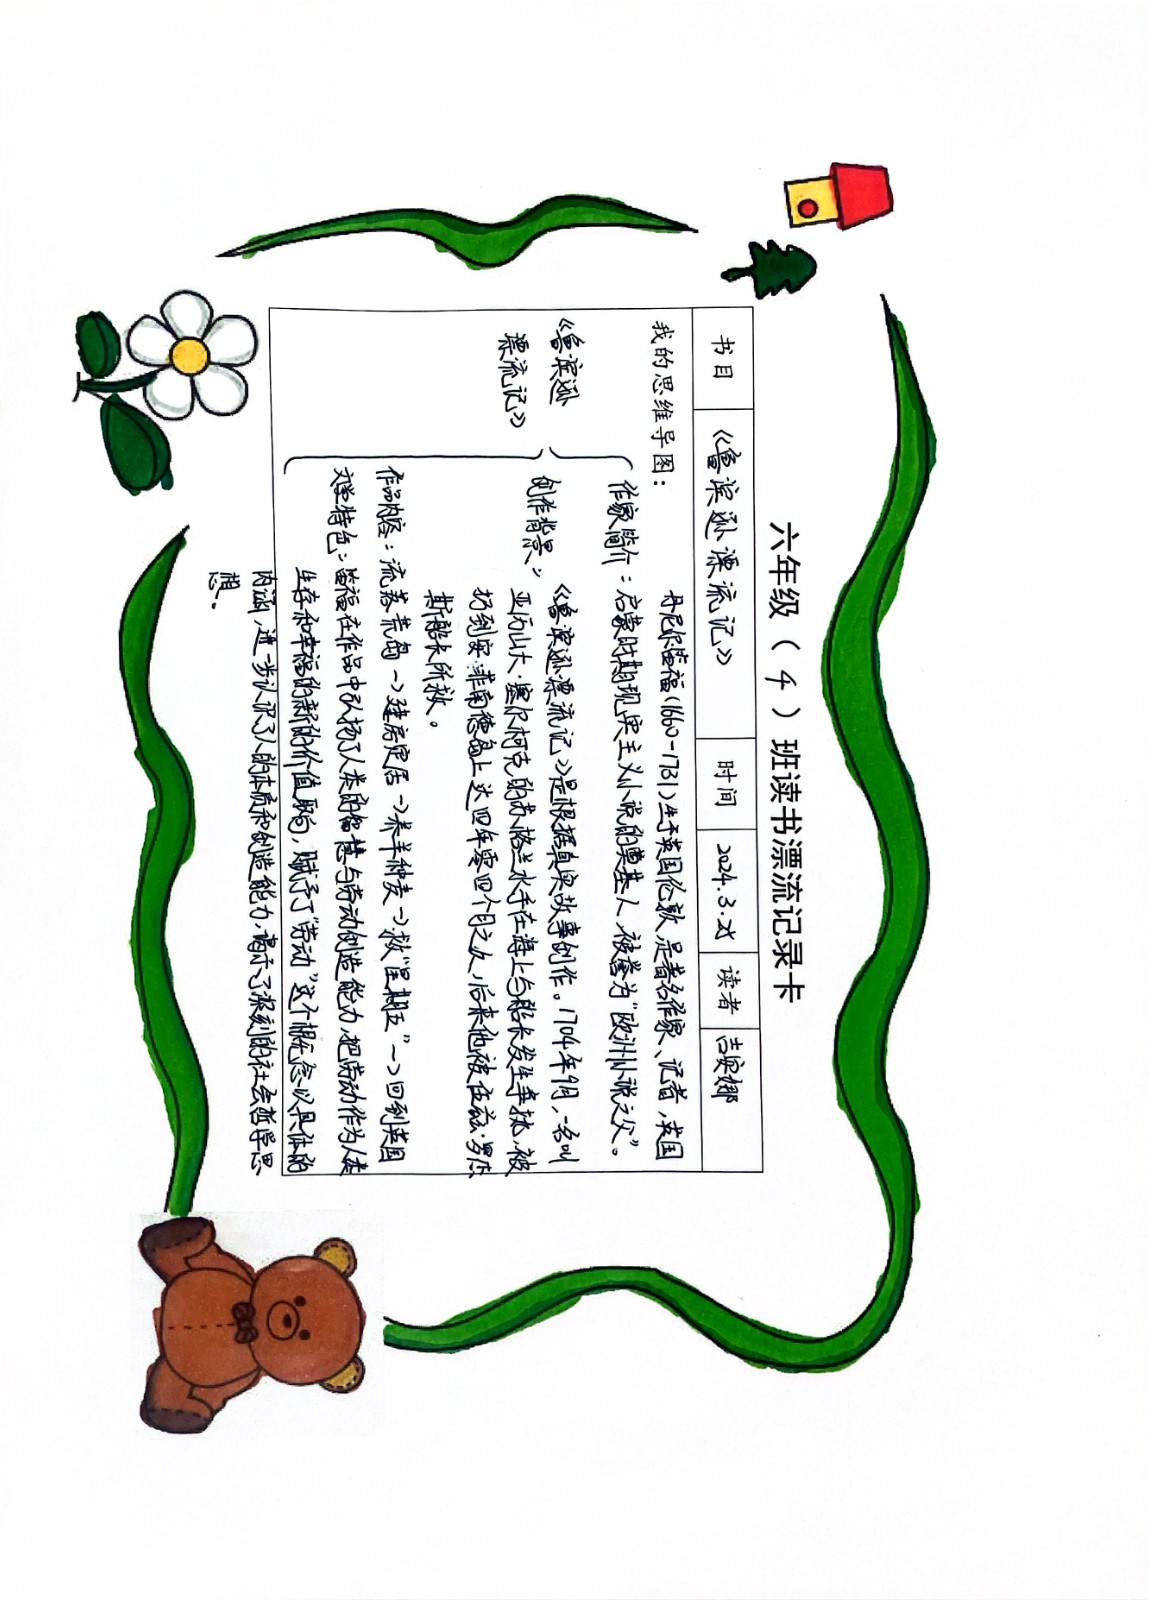 六年级（4）班读书漂流记录卡
书目 《鲁滨逊漂流记》 时间 2024.3. 读者 吉奕娜
我的思维导图：
《鲁滨逊
漂流记》
丹尼尔笛福(1660-1731)生于英国伦敦，是著名作家、记者，英国
作家简介：启蒙时期现实主义小说的奠基人，被誉为“欧洲小说之父”。
创作背景：《鲁滨逊漂流记》是根据真实故事创作。1704年9月，一名叫
亚历山大·塞尔柯克的苏格兰水手在海上与船长发生争执，被
扔到安·菲南德岛上达四年零四个月之久，后来他被伍兹·罗杰
斯船长所救。
作品内容：流落荒岛→建房定居→养羊种麦→救“星期五”→回到英国
文学特色：笛福在作品中弘扬了人类的智慧与劳动创造能力，把劳动作为人类
生存和幸福的新的价值取向，赋予了“劳动”这个概念以具体的
内涵，进一步认识了人的本质和创造能力，揭示了深刻的社会哲学思
想。